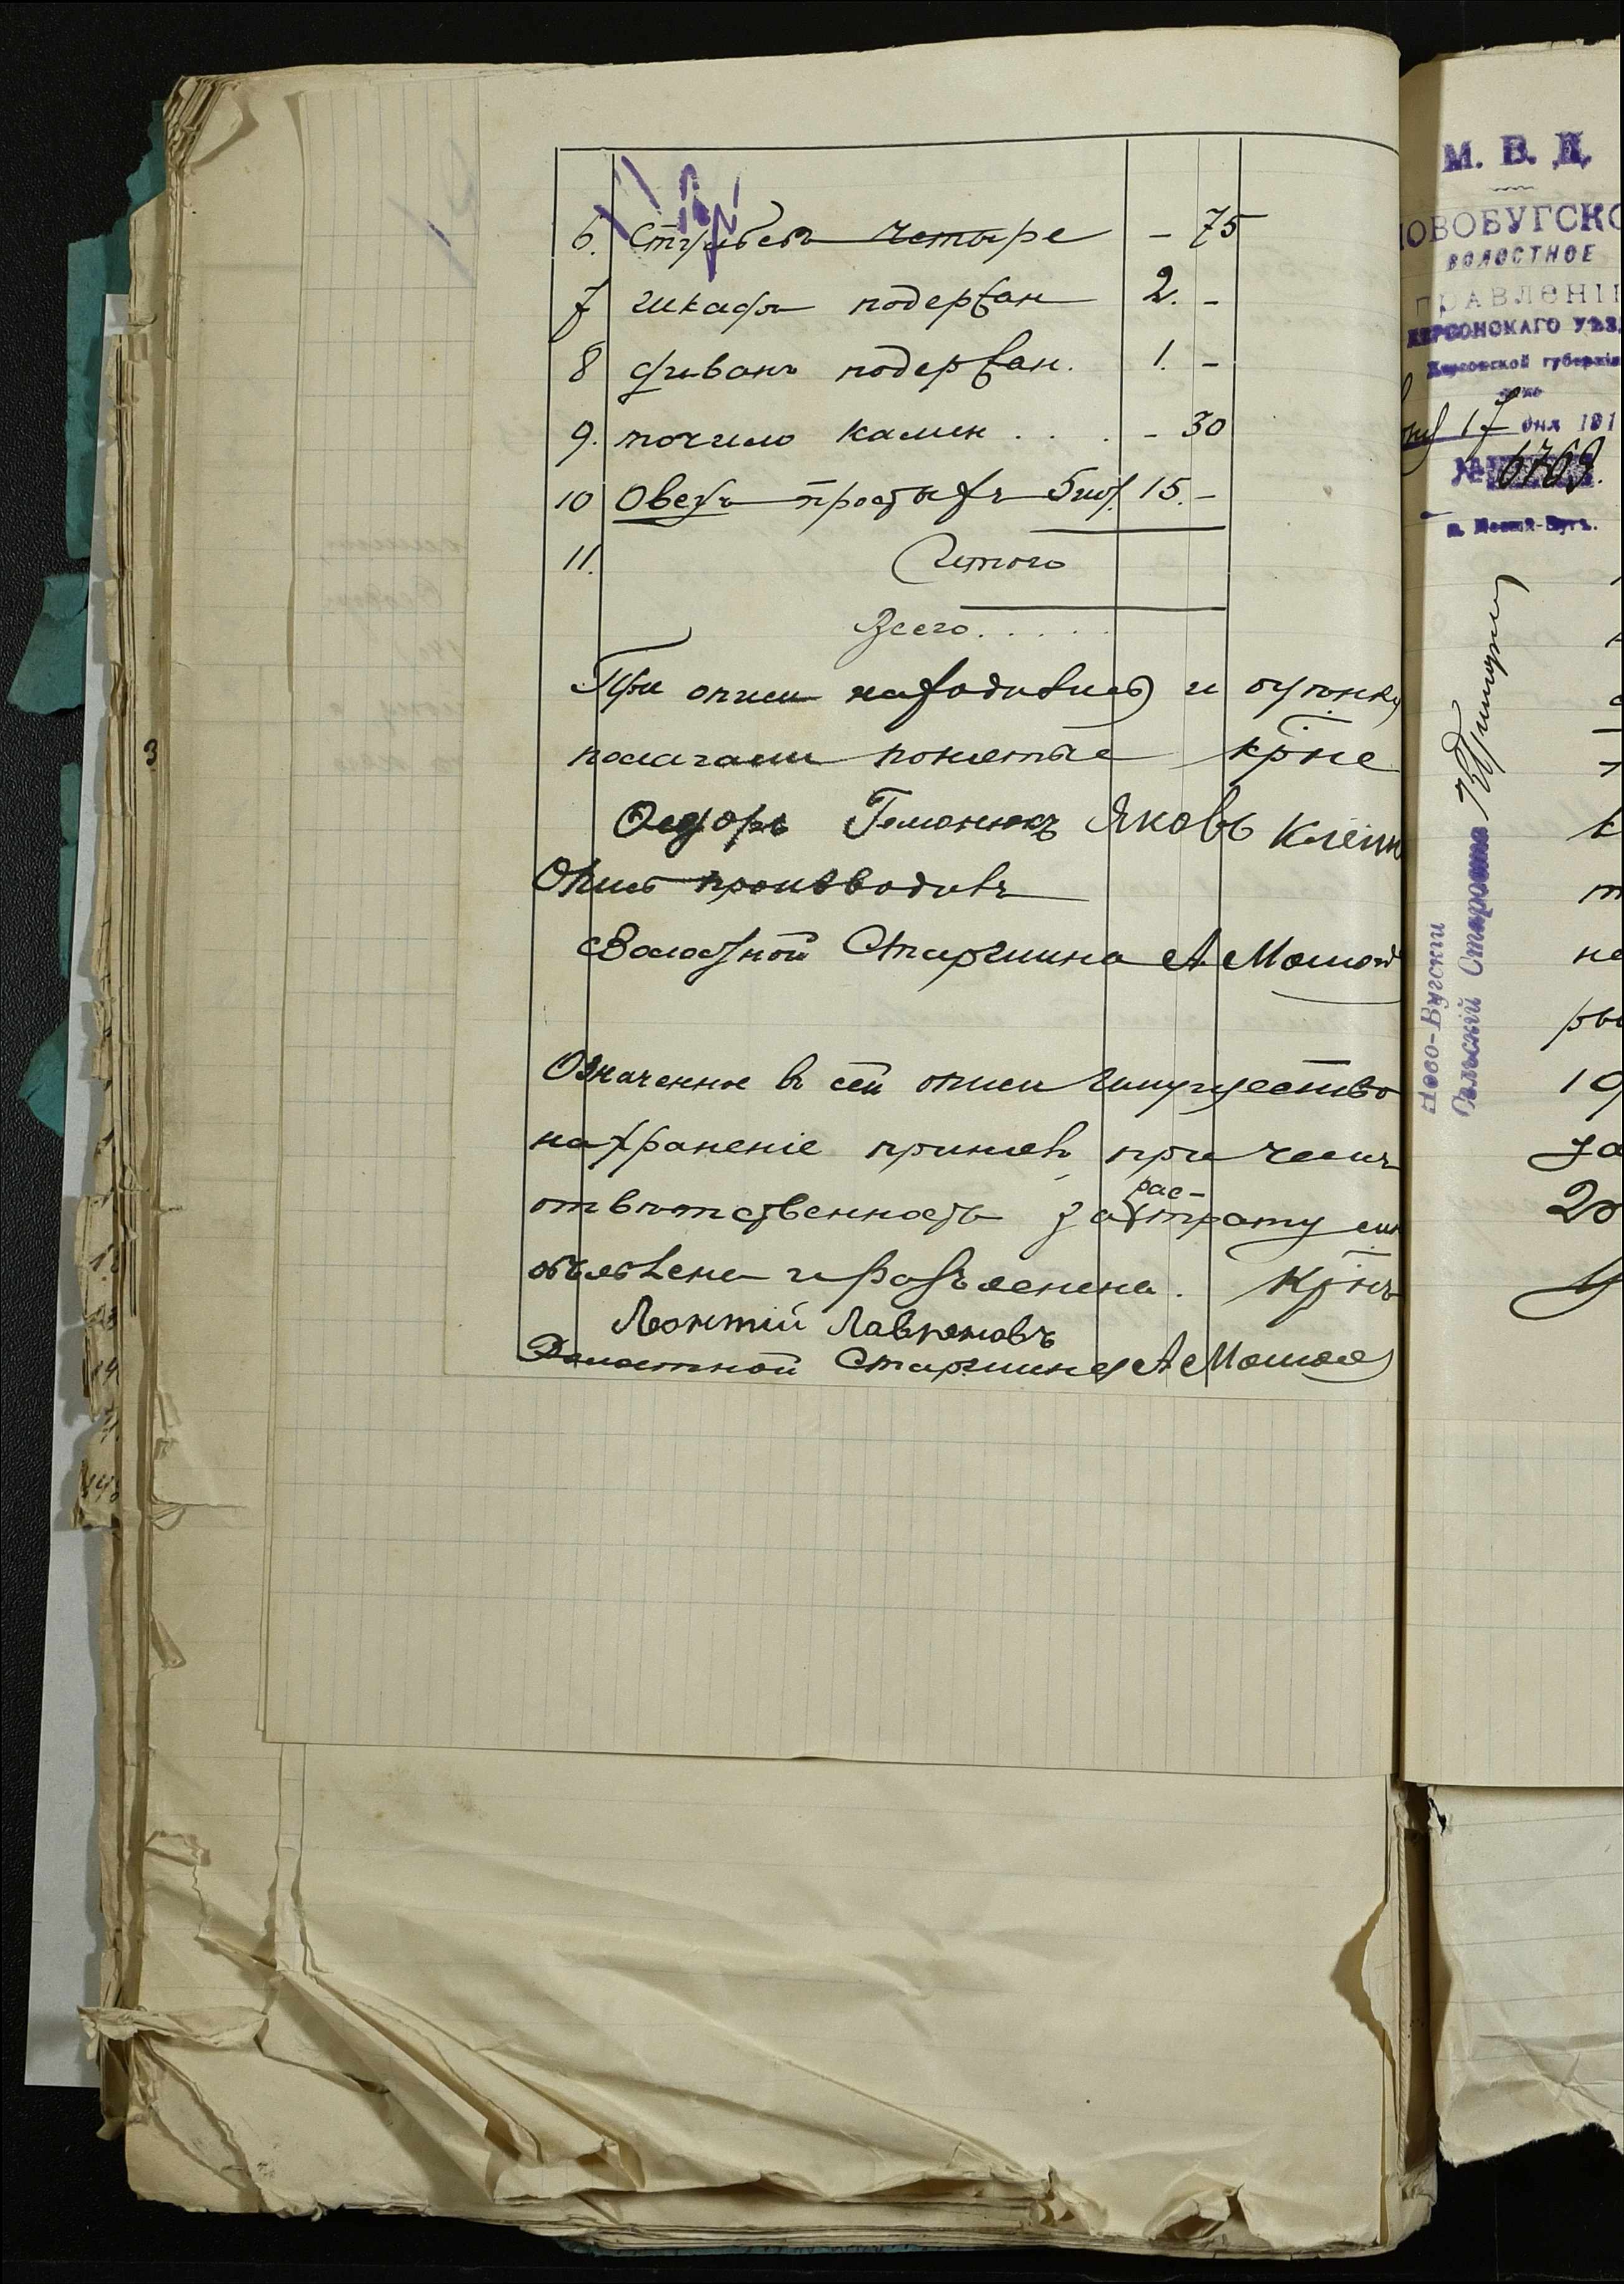 6. Стульевъ четыре - 75
7 Шкафъ подержан 2. -
8 диванъ подержан. 1. -
9. точило камен . . . - 30
10 Овецъ простыхъ 5 шт. 15. -
11. Итого
Всего . . . . .
При описи находились и оценку
полагали понятые кр-не
Федоръ Гомонюкъ Яковъ
Опись производилъ
Волостной Старшина А
Означенное въ сей описи имущество
на храненіе принялъ, при чемъ
ответственность за рас-трату
объявлена и разъяснена. Кр-нъ
Леонтій Лавреновъ
Волостной Старшина А
3
М. В. Д.
НОВОБУГСКО
ВОЛОСТНОЕ
ПРАВЛЕНІ
ХЕРСОНСКАГО УѢЗ.
Херсонской губерніи
17 дня 191
№ 6769.
п. Новый-Бугъ.
Ново-Бугскій
Сельскій Староста